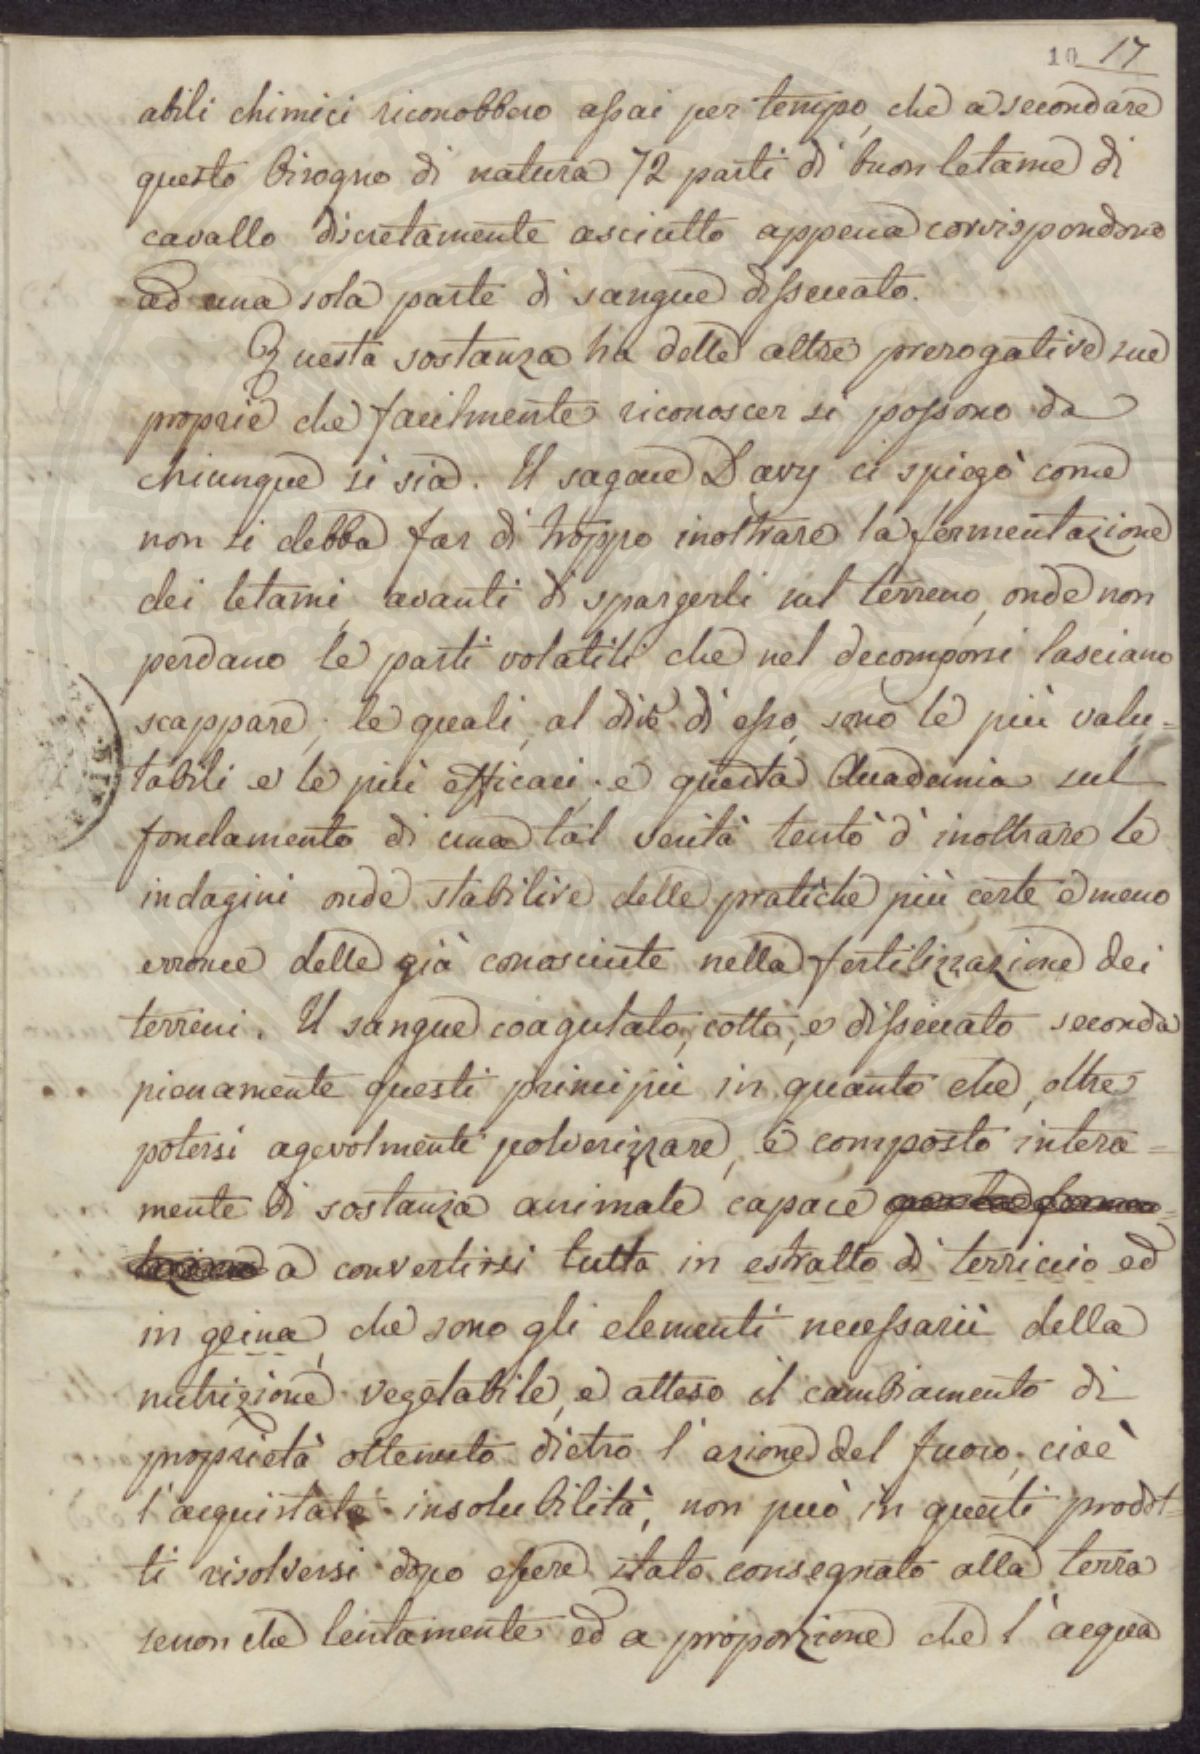 10 17
abili chimici riconobbero assai per tempo, che a secondare
questo bisogno di natura 72 parti di buon letame di
cavallo discretamente asciutto appena corrispondono
ad una sola parte di sangue disseccato.
Questa sostanza ha delle altre prerogative sue
proprie che facilmente riconoscer si possono da
chiunque si sia. Il sagace Davy ci spiegò come
non si debba far di troppo inoltrare la fermentazione
dei letami, avanti di spargerli sul terreno, onde non
perdano le parti volatili che nel decomporsi lasciano
scappare, le quali, al dire di esso, sono le più valu=
tabili e le più efficaci; e questa Accademia sul
fondamento di una tal verità tentò d'inoltrare le
indagini onde stabilire delle pratiche più certe e meno
erronee delle già conosciute nella fertilizzazione dei
terreni. Il sangue coagulato, cotto, e disseccato seconda
pienamente questi principii in quanto che, oltre
potersi agevolmente polverizzare, è composto intera=
mente di sostanza animale capace
a convertirsi tutta in estratto di terriccio ed
in geina, che sono gli elementi necessarii della
nutrizione vegetabile, e atteso il cambiamento di
proprietà ottenuto dietro l'azione del fuoco, cioè
l'acquistata insolubilità, non può in questi prodot=
ti risolversi dopo essere stato consegnato alla terra
senon che lentamente ed a proporzione che l'acqua